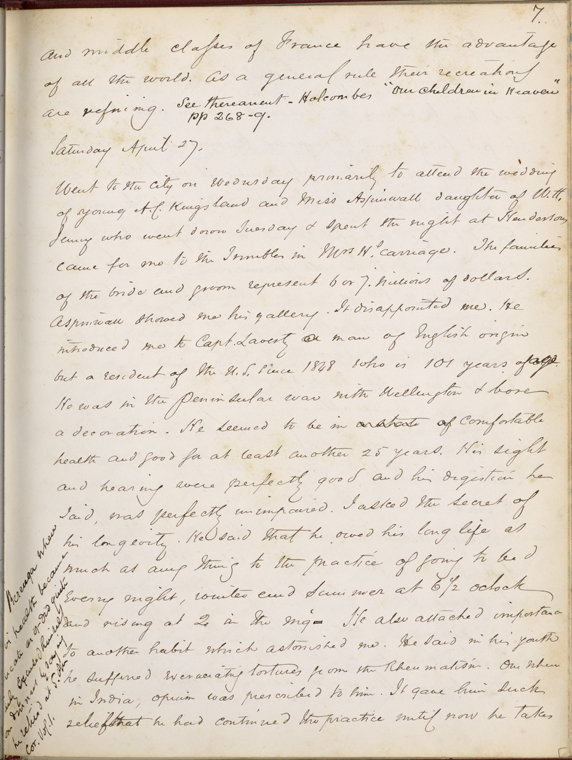 7.
and middle classes of France have the advantage
of all the world. As a general rule their recreations
are refining. See thereanent - Holcombes "Our children in Heaven"
pp 268-9.
Saturday April 27.
Went to the city on Wednesday primarily to attend the wedding
of young A.C. Kingsland and Miss Aspinwall daughter of W.H.
Jenny who went down Tuesday & spent the night at Hendersons
came for me to the in Mrs H's carriage. The families
of the bride and groom represent 6 or 7 millions of dollars.
Aspinwall showed me his gallery. It disappointed me. He
introduced me to Capt. a man of English origin
but a resident of the U.S. since 1828 who is 101 years of age
He was in the Peninsular war with Wellington & bore
a decoration. He seemed to be in a state of comfortable
health and good for at least another 25 years. His sight
and hearing were perfectly good and his digestion he
said, was perfectly unimpaired. I asked the secret of
his longevity. He said that he owed his long life as
much as any thing to the practice of going to bed
every night, winter and summer at 6 1/2 oclock
and rising at 2 in the mg- He also attached importance
to another habit which astonished me. He said in his youth
he suffered excruciating tortures from the Rheumatism. Once when
in India, opium was prescribed to him. It gave him such
relief that he had continued the practice until now he takes
when
health
of
he retired at
Cor. Vol 1.